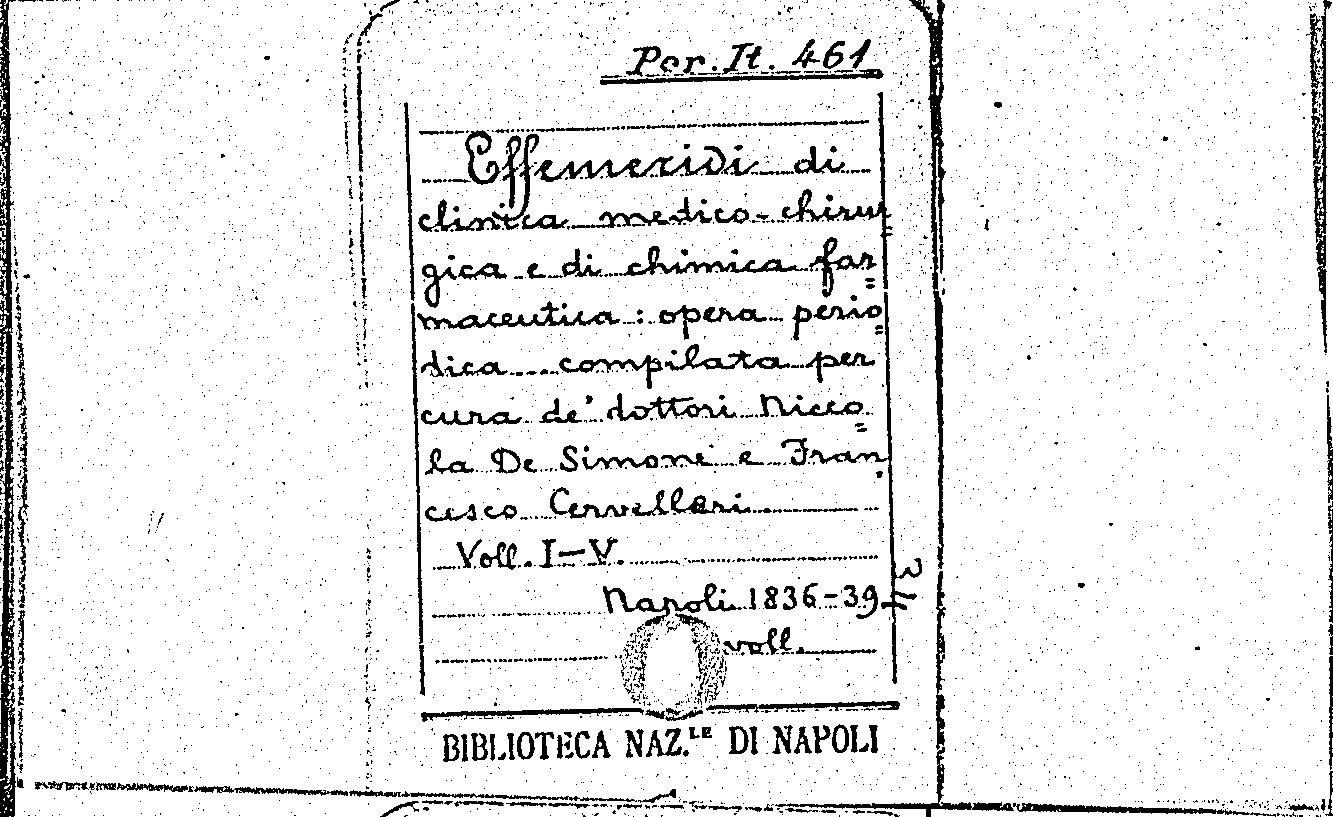 Per. It. 461
Effemeridi di
clinica medico-chirur=
gica e di chimica far=
maceutica : opera perio=
dica ... compilata per
cura de' dottori Nicco=
la De Simone e Fran
cesco Cervelleri.
Voll. I–V.
Napoli 1836-39
voll.
BIBLIOTECA NAZ.LE DI NAPOLI